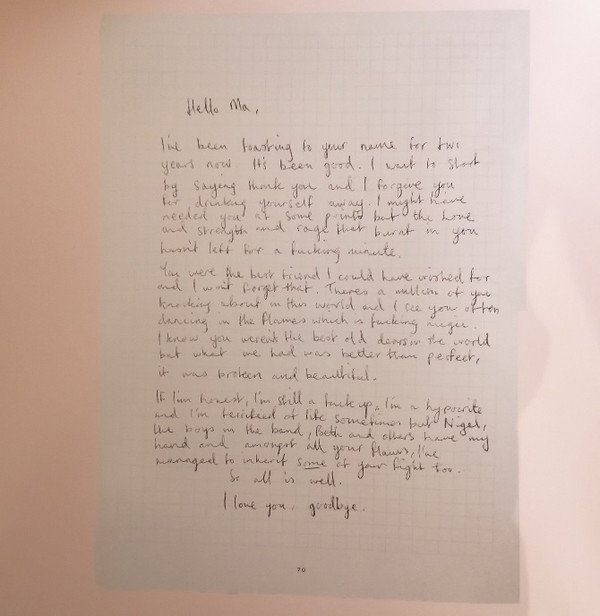 Hello Ma,
I've been toasting to your name for two
years now. It's been good. I want to start
by sayeng thank you and I forgive you
for drinking yourself away. I might have
needed you at some points but the love
and strength and rage that burnt in you
hasn't left for a fucking minute.
You were the best friend I could have wished for
and I won't forget that. Theres a million of you
knocking about in this world and I see you often
dancing in the flames which is fucking
I know you weren't the best old dear in the world
but what we had was better than perfect,
it was broken and beautiful.
If I'm honest, I'm still a fuck up, I'm a hypocrite
and I'm terrified of life sometimes but Nigel,
the boys in the band, Beth and others have my
hand and amongst all your flaws, I've
managed to inherit some of your fight too.
So all is well.
I love you, goodbye.
70